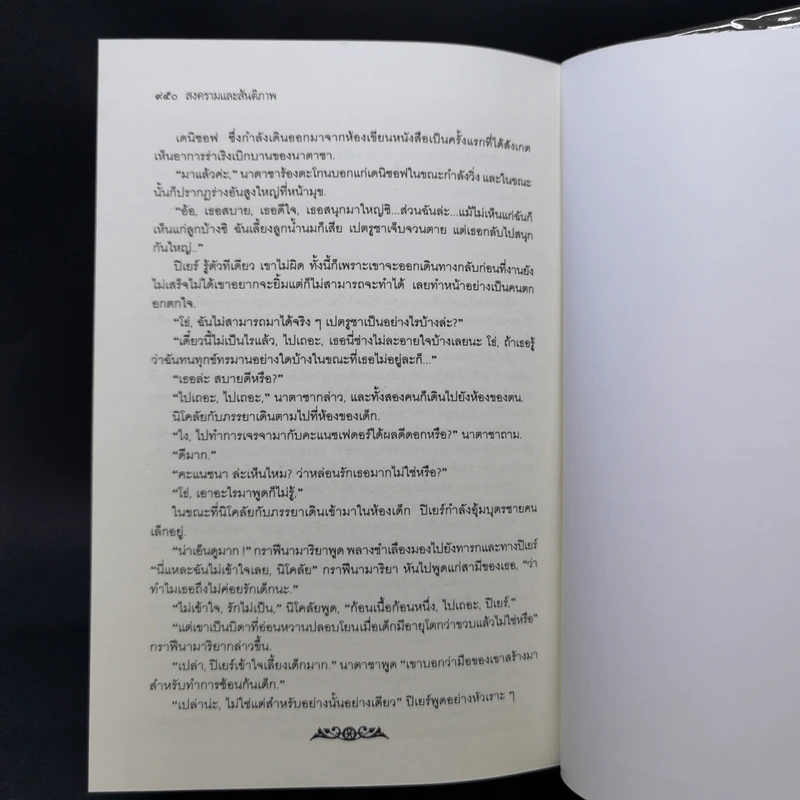 ๙๕๐ สงครามและสันติภาพ
เดนิซอฟ ซึ่งกำลังเดินออกมาจากห้องเขียนหนังสือเป็นครั้งแรกที่ได้สังเกต
เห็นอาการร่าเริงเบิกบานของนาตาชา
“มาแล้วค่ะ,” นาตาชาร้องตะโกนบอกแก่เดนิซอฟในขณะกำลังวิ่ง และในขณะ
นั้นก็ปรากฏร่างอันสูงใหญ่ที่หน้ามุข
“อ้อ, เธอสบาย, เธอดีใจ, เธอสนุกมาใหญ่ซิ...ส่วนฉันล่ะ...แม้ไม่เห็นแก่ฉันก็
เห็นแก่ลูกบ้างซิ ฉันเลี้ยงลูกน้ำนมก็เสีย เปตรูชาเจ็บจวนตาย แต่เธอกลับไปสนุก
กันใหญ่..”
ปิแยร์ รู้ตัวทีเดียว เขาไม่ผิด ทั้งนี้ก็เพราะเขาจะออกเดินทางกลับก่อนที่งานยัง
ไม่เสร็จไม่ได้เขาอยากจะยิ้มแต่ก็ไม่สามารถจะทำได้ เลยทำหน้าอย่างเป็นคนตก
อกตกใจ.
“โธ่, ฉันไม่สามารถมาได้จริง ๆ เปตรูชาเป็นอย่างไรบ้างล่ะ?”
“เดี๋ยวนี้ไม่เป็นไรแล้ว, ไปเถอะ, เธอนี่ช่างไม่ละอายใจบ้างเลยนะ โธ่, ถ้าเธอรู้
ว่าฉันทนทุกข์ทรมานอย่างใดบ้างในขณะที่เธอไม่อยู่ละก็...”
“เธอล่ะ สบายดีหรือ?”
“ไปเถอะ, ไปเถอะ,” นาตาชากล่าว, และทั้งสองคนก็เดินไปยังห้องของตน.
นิโคลัยกับภรรยาเดินตามไปที่ห้องของเด็ก.
“ไง, ไปทำการเจรจามากับคะแนซเฟดอร์ได้ผลดีดอกหรือ?” นาตาชาถาม.
“ดีมาก.”
“คะแนซนา ล่ะเห็นไหม? ว่าหล่อนรักเธอมากไม่ใช่หรือ?”
“โธ่, เอาอะไรมาพูดก็ไม่รู้,”
ในขณะที่นิโคลัยกับภรรยาเดินเข้ามาในห้องเด็ก ปิแยร์กำลังอุ้มบุตรชายคน
เล็กอยู่.
“น่าเอ็นดูมาก !” กราฟีนามาริยาพูด พลางชำเลืองมองไปยังทารกและทางปิแยร์
“นี่แหละฉันไม่เข้าใจเลย, นิโคลัย” กราฟีนามาริยา หันไปพูดแก่สามีของเธอ, “ว่า
ทำไมเธอถึงไม่ค่อยรักเด็กนะ.”
“ไม่เข้าใจ, รักไม่เป็น,” นิโคลัยพูด, “ก้อนเนื้อก้อนหนึ่ง, ไปเถอะ, ปิแยร์.”
“แต่เขาเป็นบิดาที่อ่อนหวานปลอบโยนเมื่อเด็กมีอายุโตกว่าขวบแล้วไม่ใช่หรือ”
กราฟีนามาริยากล่าวขึ้น.
“เปล่า, ปิแยร์เข้าใจเลี้ยงเด็กมาก.” นาตาชาพูด “เขาบอกว่ามือของเขาสร้างมา
สำหรับทำการช้อนก้นเด็ก.”
“เปล่าน่ะ, ไม่ใช่แต่สำหรับอย่างนั้นอย่างเดียว” ปิแยร์พูดอย่างหัวเราะ ๆ